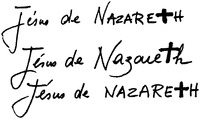 Jésus de NAZARETH
Jésus de Nazareth
Jésus de NAZARETH